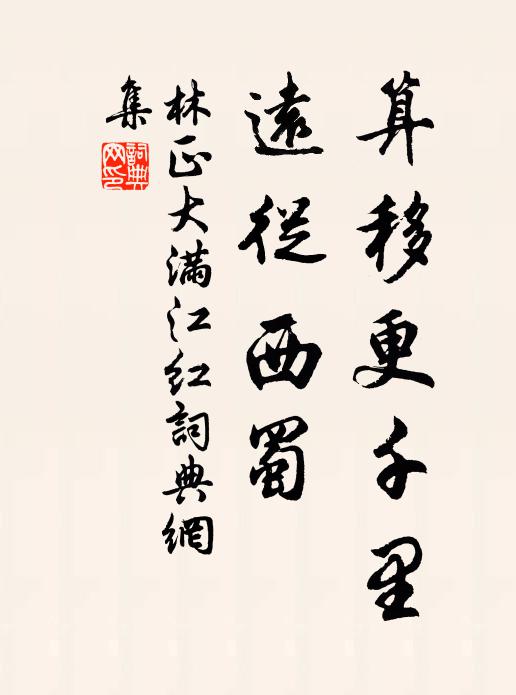 算移更千里
遠從西蜀
林正大滿江紅詞典網
集
詞典
網印